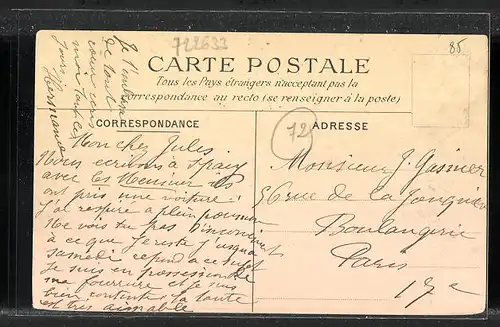 722633
85
Je t'embrasse
de tout
cœur
moi
Jours
Hermance
CARTE POSTALE
Tous les Pays étrangers n'acceptant pas la
correspondance au recto (se renseigner à la poste)
CORRESPONDANCE
72
ADRESSE
Mon cher Jules
Nous écrivons à
avec les Meusnier ils
ont pris une voiture
J'ai respiré à plein poumon
Ne vois tu pas d'inconvénient
à ce que je reste jusqu'à
samedi répond à ce sujet
Je suis en possession de
ma fourrure et je suis
bien contente ta tante
est très aimable
Monsieur J. Gasnier
56 rue de la Jonquière
Boulangerie
Paris
17e